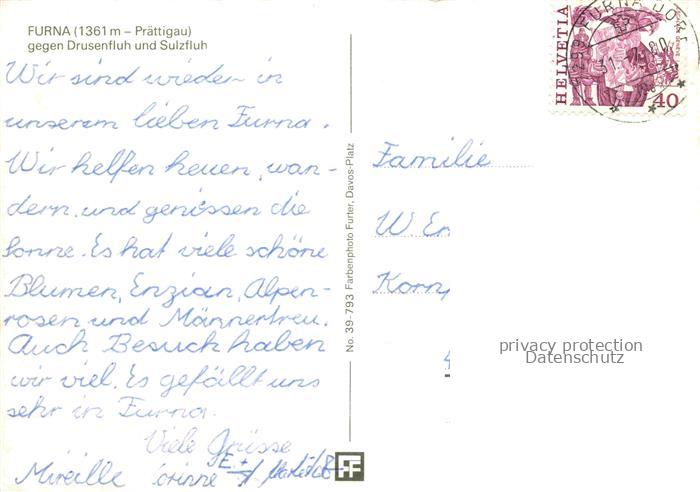 FURNA (1361 m – Prättigau)
gegen Drusenfluh und Sulzfluh
Wir sind wieder in
unserem lieben Furna.
Wir helfen heuen, wan-
dern und geniessen die
Sonne. Es hat viele schöne
Blumen, Enzian, Alpen-
rosen und Männertreu.
Auch Besuch haben
wir viel. Es gefällt uns
sehr in Furna.
Viele Grüsse
Mireille Corinne E. +
No. 39-793 Farbenphoto Furter, Davos-Platz
FF
HELVETIA
40
FURNA DORF
Familie
W. En
Korn
privacy protection
Datenschutz